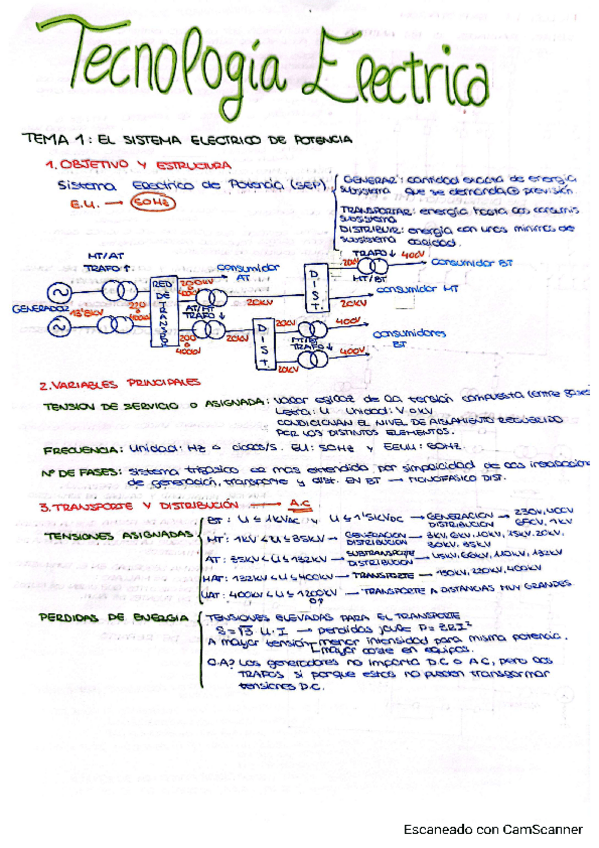 Tecnología Electrica
TEMA 1: EL SISTEMA ELECTRICO DE POTENCIA
1. OBJETIVO Y ESTRUCTURA
Sistema Electrico de Potencia (SEP)
E.U. → 50Hz
GENERAR: cantidad exacta de energía
subsistema que se demanda previsión.
TRANSPORTAR: energía hasta los consumos
subsistema
DISTRIBUIR: energía con unos mínimos de
subsistema calidad.
MT/AT
TRAFO ↑
GENERADOR
13'8kV
220
400kV
RED
DE TRANSP.
220kV
consumidor
AT
AT/MT
TRAFO ↓
220
400kV
20kV
DIST.
TRAFO ↓ 400V
20kV
MT/BT
consumidor BT
consumidor MT
20kV
20kV
DIST.
20kV
400V
MT/BT
TRAFO ↓
20kV
400V
consumidores
BT
2. VARIABLES PRINCIPALES
TENSION DE SERVICIO O ASIGNADA: valor eficaz de la tensión compuesta (entre fases)
Letra: U Unidad: V o kV
CONDICIONAN EL NIVEL DE AISLAMIENTO REQUERIDO
POR LOS DISTINTOS ELEMENTOS.
FRECUENCIA: Unidad: Hz o ciclos/s. EU: 50Hz y EEUU: 60Hz.
Nº DE FASES: sistema trifásico es mas extendido por simplicidad de las instalaciones
de generación, transporte y dist. EN BT → MONOFASICO DIST.
3. TRANSPORTE Y DISTRIBUCIÓN → A.C
TENSIONES ASIGNADAS
BT: U ≤ 1kVac y U ≤ 1'5kVDC → GENERACION DISTRIBUCION → 230V, 400V 690V, 1kV
MT: 1kV < U ≤ 35kV → GENERACION DISTRIBUCION → 3kV, 6kV, 10kV, 15kV, 20kV, 30kV, 35kV
AT: 35kV < U ≤ 132kV → SUBTRANSPORTE DISTRIBUCION → 45kV, 66kV, 110kV, 132kV
MAT: 132kV < U ≤ 400kV → TRANSPORTE → 150kV, 220kV, 400kV
UAT: 400kV < U ≤ 1200kV → TRANSPORTE A DISTANCIAS MUY GRANDES
PERDIDAS DE ENERGIA
TENSIONES ELEVADAS PARA EL TRANSPORTE
S = √3 U · I → perdidas joule P = 3RI²
A mayor tensión → menor intensidad para misma potencia.
mayor coste en equipos.
C.A? Los generadores no importa D.C o A.C, pero los
TRAFOS si porque estos no pueden transformar
tensiones D.C.
Escaneado con CamScanner